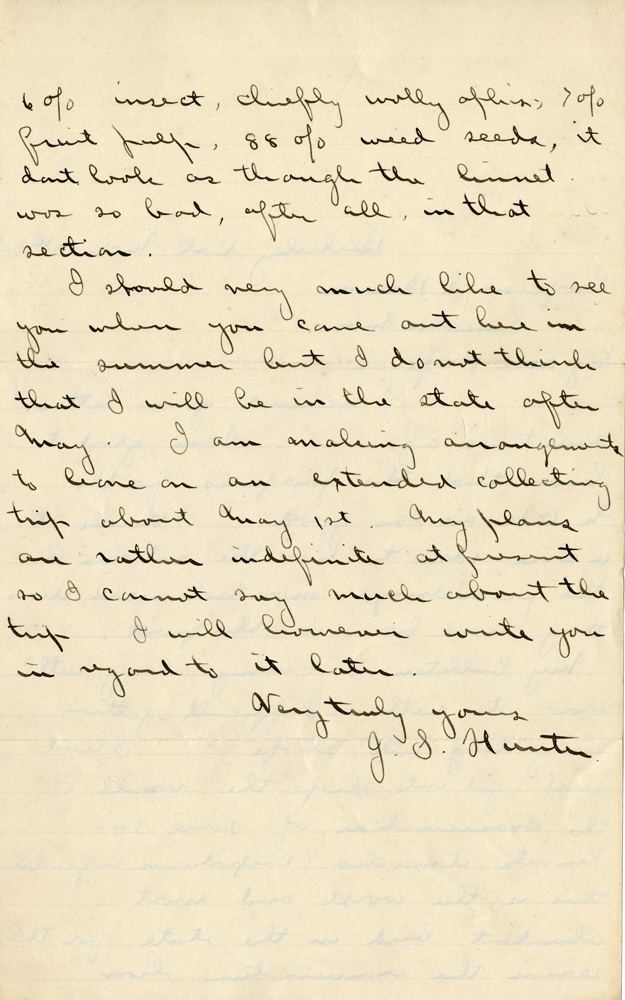 6% insect, chiefly wolly aphis; 7%
fruit pulp, 88% weed seeds, it
dont look as though the linnet
was so bad, after all, in that
section.
I should very much like to see
you when you come out here in
the summer but I do not think
that I will be in the state after
May. I am making arrangements
to leave on an extended collecting
trip about May 1st. My plans
are rather indefinite at present
so I cannot say much about the
trip I will however write you
in regard to it later.
Very truly yours
J. S. Hunter.